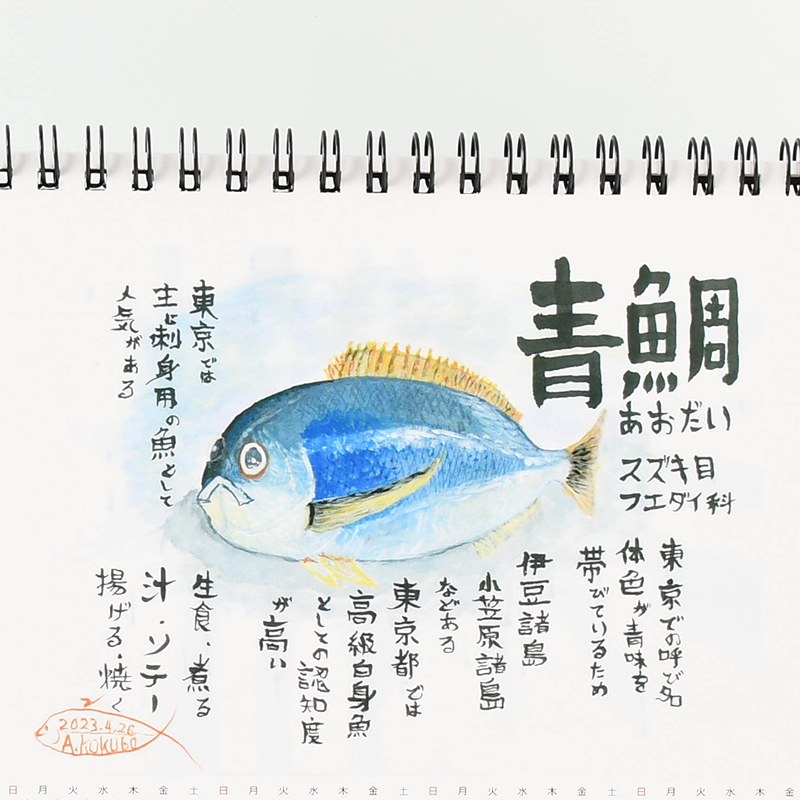 青鯛
あおだい
スズキ目
フエダイ科
東京での呼び名
体色が青味を
帯びているため
伊豆諸島
小笠原諸島
などある
東京都では
高級白身魚
としての認知度
が高い
東京では
主に刺身用の魚として
人気がある
生食、煮る
汁・ソテー
揚げる・焼く
2023.4.26
A.KOKUBO
日 月 火 水 木 金 土 日 月 火 水 木 金 土 日 月 火 水 木 金 土 日 月 火 水 木 金